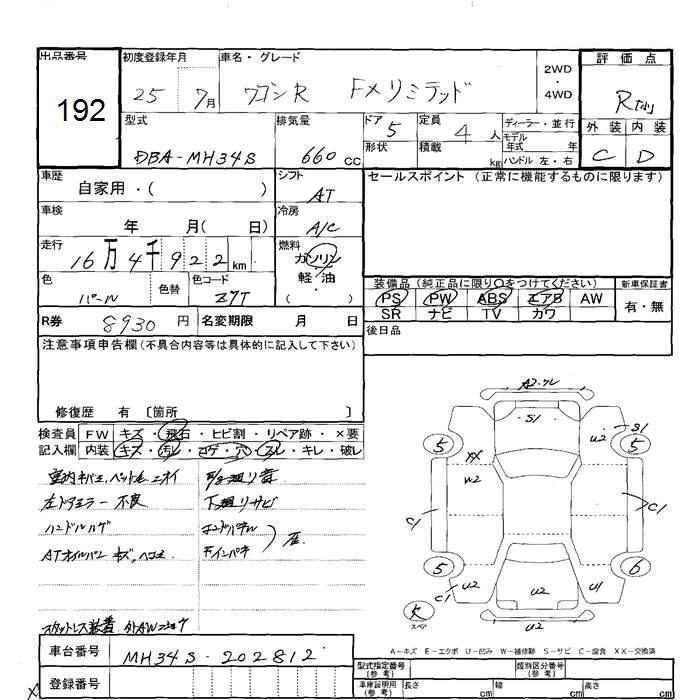 出品番号
192
初度登録年月
25 7月
車名・グレード
ワゴンR FXリミテッド
2WD
・
4WD
評価点
R
外装 内装
C D
型式
DBA-MH34S
排気量
660 cc
ドア 5
形状
定員 4 人
積載 kg
ディーラー・並行
モデル
年式 年
ハンドル 左・右
車歴
自家用・( )
シフト
AT
セールスポイント (正常に機能するものに限ります)
車検
年 月( 日)
冷房
A/C
走行
16万4千922km
燃料
ガソリン
軽・油
( )
色
パール
色替
色コード
Z7T
装備品(純正品に限り○をつけてください)
PS PW ABS エアB AW
SR ナビ TV カワ
新車保証書
有・無
R券 8930 円
名変期限 月 日
後日品
注意事項申告欄(不具合内容等は具体的に記入して下さい)
修復歴 有 〔箇所 〕
検査員
記入欄
FW キズ・飛石・ヒビ割・リペア跡・×要
内装 キズ・汚レ・コゲ・穴・スレ・キレ・破レ
左ドアミラー 不良
下廻リサビ
ハンドルハゲ
ATオイルパン キズ、ヘコミ
スタットレス装着
車台番号
MH34S-202812
登録番号
S1
U2
S1
5
5
XX
W2
C1
C1
5
6
C1
U2
U2
U1
U2
スペア
A-キズ E-エクボ U-凹み W-補修跡 S-サビ C-腐食 XX-交換済
型式指定番号
(参考)
類別区分番号
(参考)
車庫証明用
(参考)
長さ cm
幅 cm
高さ cm